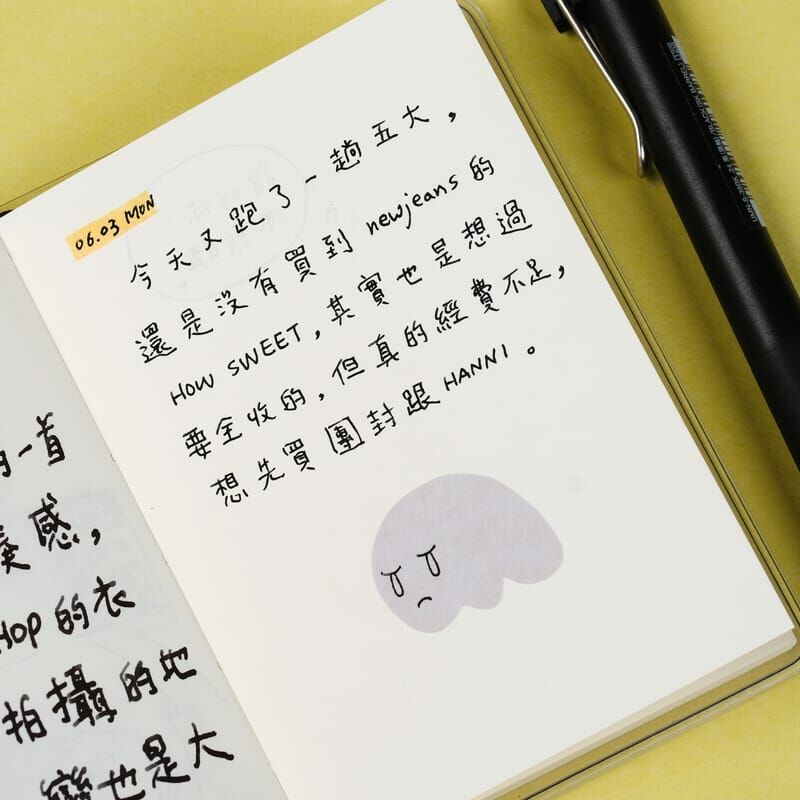 06.03 MON
今天又跑了一趟五大，
還是沒有買到 newjeans 的
HOW SWEET，其實也是想過
要全收的，但真的經費不足，
想先買團封跟 HANNI。
的一首
奏感，
HOP的衣
拍攝的地
戀也是大